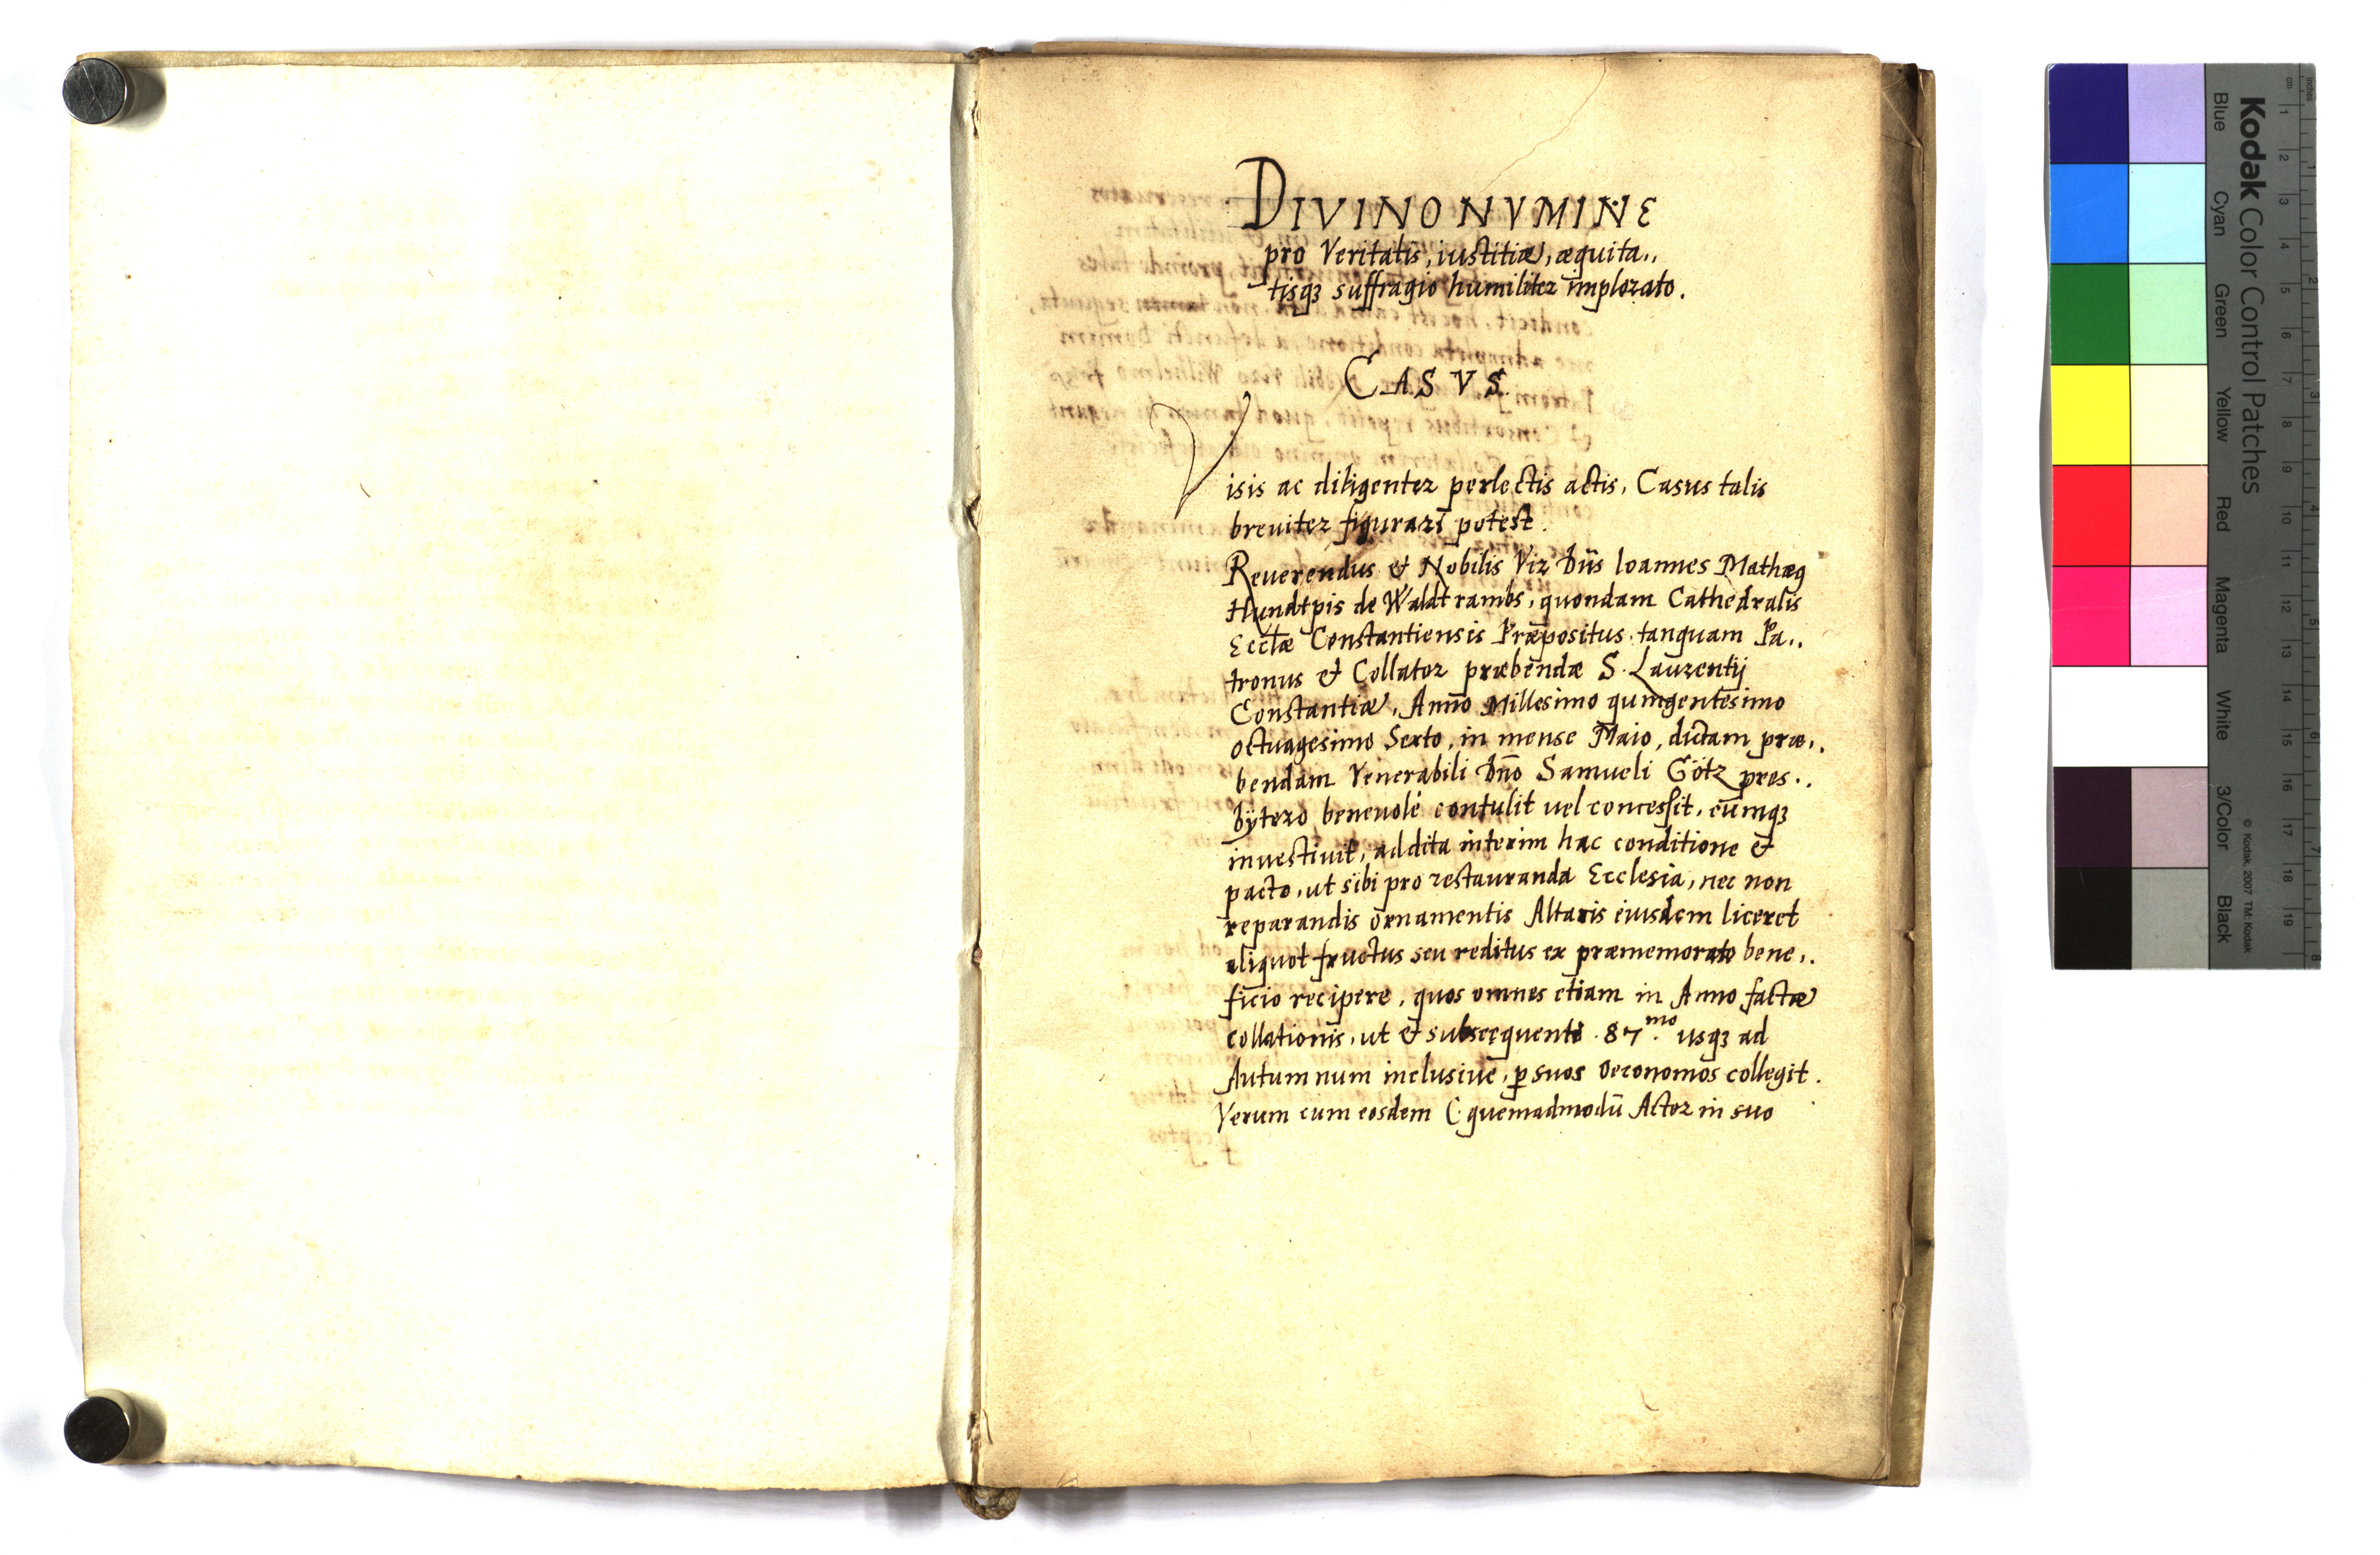 DIVINO NVMINE
pro Veritatis, iustitiæ, æquita,,
tisqꝫ suffragio humiliter implorato.
CASVS.
Visis ac diligenter perlectis actis, Casus talis
breuiter figurari potest.
Reuerendus et Nobilis Vir Dns̄ Ioannes Mathæꝯ
de Waldtrambs, quondam Cathedralis
Eccl̄æ Constantiensis Præpositus tanquam Pa,,
tronus et Collator præbendæ S. Laurentij
Constantiæ, Anno Millesimo quingentesimo
octuagesimo Sexto, in mense Maio, dictam præ,,
bendam Venerabili Dn̄o Samueli Götz pres,,
bÿtero beneuolè contulit uel concessit, eumqꝫ
inuestiuit, addita interim hac conditione et
pacto, ut sibi pro restauranda Ecclesia, nec non
reparandis ornamentis Altaris eiusdem liceret
aliquot fructus seu reditus ex præmemorato bene,,
ficio recipere, quos omnes etiam in Anno factæ
collationis, ut et subsequenti 87.mo usqꝫ ad
Autumnum inclusiuè, ꝑ suos Oeconomos collegit.
Verum cum eosdem (quemadmodū Actor in suo
Kodak Color Control Patches
Blue Cyan Green Yellow Red Magenta White 3/Color Black
© Kodak, 2007 TM: Kodak
inches
cm
1 2 3 4 5 6 7 8 9 10 11 12 13 14 15 16 17 18 19
1 2 3 4 5 6 7 8